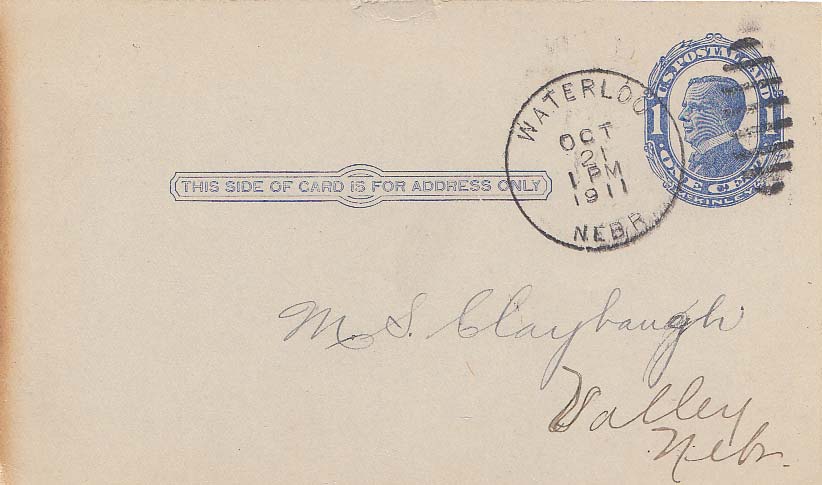 U.S. POSTAL CARD
1 1
ONE CENT
McKINLEY
WATERLOO
OCT
21
1 PM
1911
NEBR.
THIS SIDE OF CARD IS FOR ADDRESS ONLY
M. S. Claybaugh
Valley
Nebr.